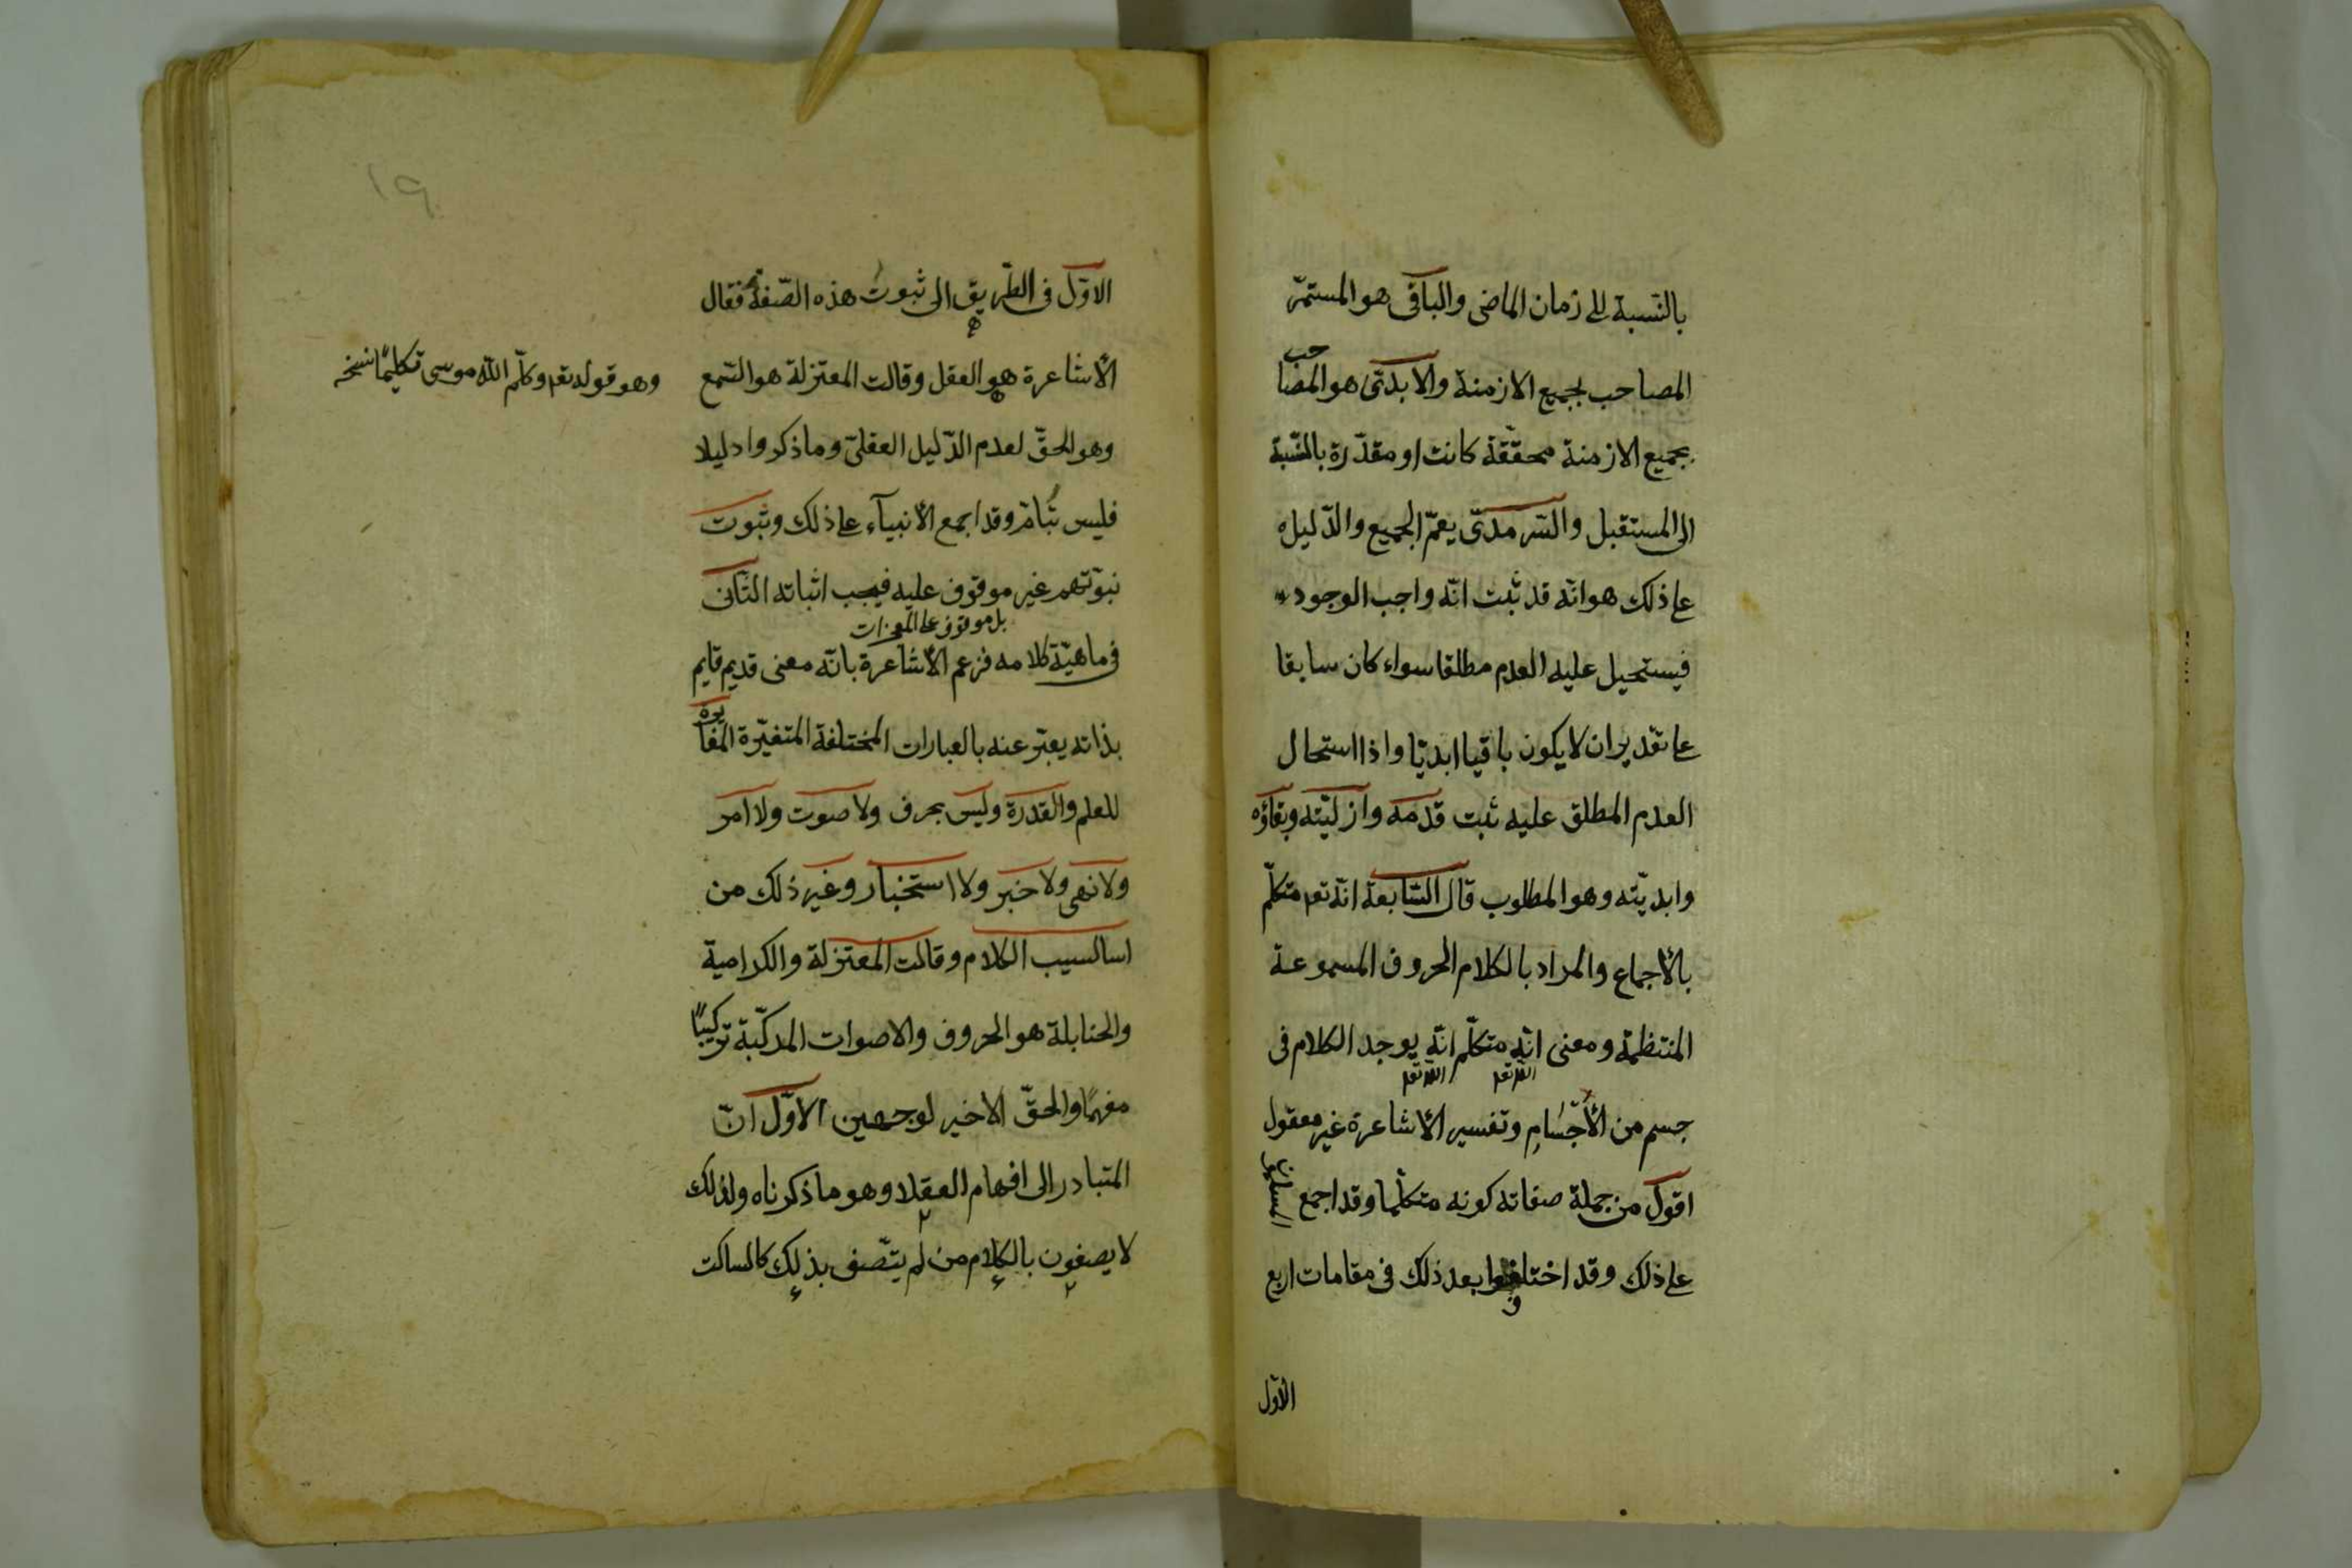 بالنّسبة الى زمان الماضى والباقى هو المستمرّ
المصاحب لجميع الازمنة والابدىّ هو المصاحب
بجميع الازمنة محقّقة كانت او مقدّرة بالنّسبة
الى المستقبل والسّرمدىّ يعمّ الجميع والدّليل
على ذلك هو انّه قد ثبت انّه واجب الوجود
فيستحيل عليه العدم مطلقا سواء كان سابقا
على تقدير ان لا يكون باقيا ابديّا واذا استحال
العدم المطلق عليه ثبت قدمه وازليّته وبقاؤه
وابديّته وهو المطلوب قال السّابعة انّه تعم متكلّم
بالأجماع والمراد بالكلام الحروف المسموعة
المنتظمة ومعنى انّه متكلّم انّه يوجد الكلام فى
الله تعم الله تعم
جسم من الأجسام وتفسير الأشاعرة غير معقول
اقول من جملة صفاته كونه متكلّما وقد اجمع المسلمون
على ذلك وقد اختلفوا بعد ذلك فى مقامات اربع
الأوّل
١٩
الاوّل فى الطّريق الى ثبوت هذه الصّفة فقال
الأشاعرة هو العقل وقالت المعتزلة هو السّمع
وهو قوله تعم وكلّم الله موسى تكليمًا نسخه
وهو الحقّ لعدم الدّليل العقلىّ وما ذكروا دليلا
فليس بتامّ وقد اجمع الأنبيآء على ذلك وثبوت
نبوّتهم غير موقوف عليه فيجب اثباته الثّانى
بل موقوف على المعجزات
فى ماهيّة كلامه فزعم الأشاعرة بانّه معنى قديم قايم
بذاته يعبّر عنه بالعبارات المختلفة المتغيّرة المغايرة
للعلم والقدرة وليس بحرف ولا صوت ولا امر
ولا نهى ولا خبر ولا استخبار وغير ذلك من
اسالسيب الكلام وقالت المعتزلة والكرامية
والحنابلة هو الحروف والاصوات المركّبة تركيبًا
مفهمًا والحقّ الاخير لوجهين الاوّل انّ
المتبادر الى افهام العقلا وهو ما ذكرناه ولذلك
لا يصفون بالكلام من لم يتّصف بذلك كالساكت